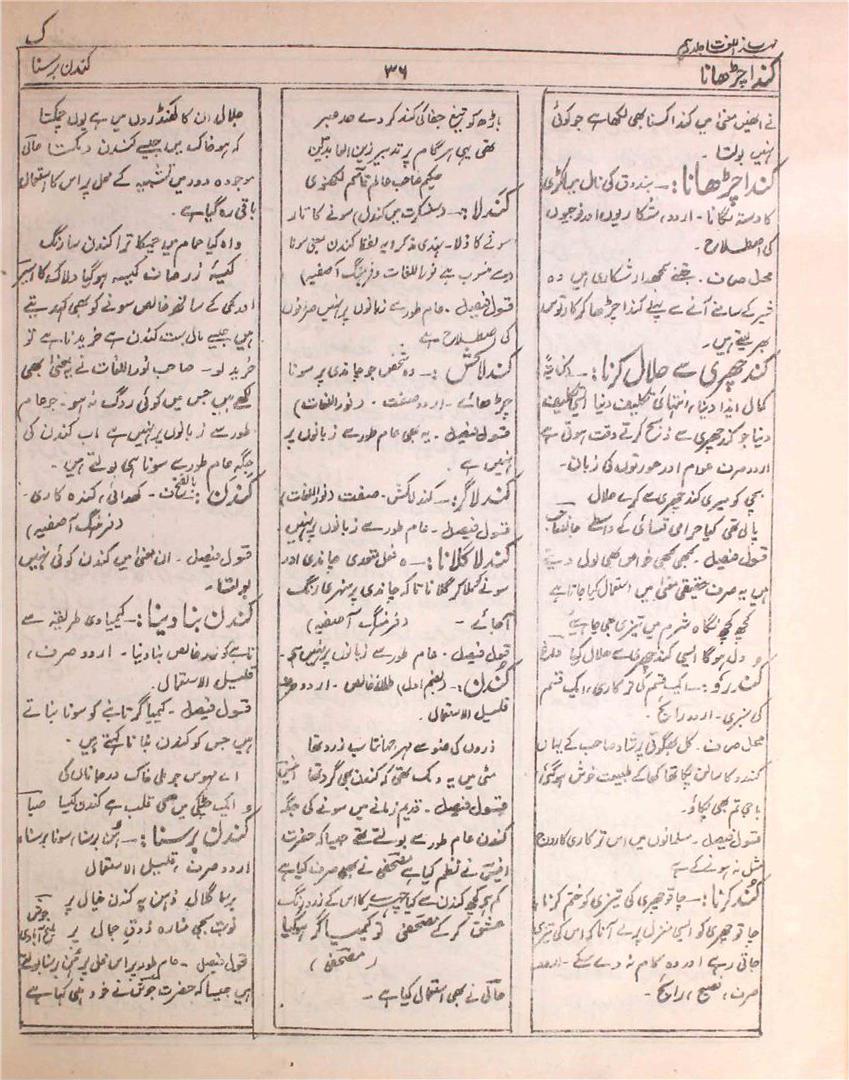 ک
مہذب اللغات جلد دہم
کندا چڑھانا
۳۶
کندن برسنا
نے انھیں معنیٰ میں کندا کسنا بھی لکھا ہے جو کوئی
نہیں بولتا ۔
کندا چڑھانا :۔ بندوق کی نال میں لکڑی
کا دستہ لگانا ۔ اردو، شکاریوں اور فوجیوں
کی اصطلاح ۔
محل صرف ۔ جتنے سمجھدار شکاری ہیں وہ
شیر کے سامنے آنے سے پہلے کندا چڑھا کر کارتوس
بھر لیتے ہیں ۔
کند چھری سے حلال کرنا :۔
کمال ایذا دینا، انتہائی تکلیف دینا ایسی تکلیف
دینا جو کند چھری سے ذبح کرتے وقت ہوتی ہے
اردو صرف عوام اور عورتوں کی زبان ۔
بچی کو میری کند چھری سے کرے حلال
پالی تھی کیا حرامی قصائی کے واسطے جان صاحب
قول فیصل ۔ کبھی کبھی خواص بھی بول دیتے
ہیں یہ صرف حقیقی معنیٰ میں استعمال کیا جاتا ہے
کچھ کچھ نگاہ شرم میں تیزی بھی چاہئے
دل ہوگا ایسی کند چھری سے حلال کیا داغ
کندرو :۔ ایک قسم کی ترکاری، ایک قسم
کی سبزی ۔ اردو رائج ۔
محل صرف ۔ کل بھگوتی پرشاد صاحب کے یہاں
کندرو کا سالن پکا تھا کھا کے طبیعت خوش ہوگئی
باجی تم بھی پکاؤ ۔
قول فیصل ۔ مسلمانوں میں اس ترکاری کا رواج
مثل نہ ہونے کے ہے
کند کرنا :۔ چاقو چھری کی تیزی کو ختم کرنا
چاقو چھری کو ایسی منزل پر لے آنا کہ اس کی تیزی
جاتی رہے اور وہ کام نہ دے سکے ۔ اردو
صرف، فصیح، رائج ۔
باڑھ کو تیغ جفا کی کند کر دے صدمہ
تھی یہی ہر گام پر تدبیر زین العابدین
حکیم صاحب عالم قائم لکھنوی
کندلا :۔ (سنسکرت میں کندل) سونے کا تار
سونے کا ڈلا ۔ ہندی مذکر یہ لفظ کندن بمعنی سونا
سے منسوب ہے نوراللغات (فرہنگ آصفیہ)
قول فیصل ۔ عام طور سے زبانوں پر نہیں صرافوں
کی اصطلاح ہے
کندلاکش :۔ وہ شخص جو چاندی پر سونا
چڑھائے ۔ اردو صفت ۔ (نوراللغات)
قول فیصل ۔ یہ بھی عام طور سے زبانوں پر
نہیں ہے ۔
کندلاگر :۔ کندلاکش ۔ صفت (نوراللغات)
قول فیصل ۔ عام طور سے زبانوں پر نہیں
کندلا گلانا :۔ فعل متعدی چاندی اور
سونے کو ملا کر گلانا تاکہ چاندی پر سنہری رنگ
آجائے ۔ (فرہنگ آصفیہ)
قول فیصل ۔ عام طور سے زبانوں پر نہیں ہے ۔
کندن :۔ (بضم اول) طلائے خالص ۔ اردو صرف
قلیل الاستعمال ۔
ذروں کی ضو سے مہر جہانتاب زرد تھا
مٹی میں یہ دمک تھی کہ کندن بھی گرد تھا انیس
قول فیصل ۔ قدیم زمانے میں سونے کی جگہ
کندن عام طور سے بولتے تھے جیسا کہ حضرت
انیس نے نظم کیا ہے مصحفی نے بھی صرف کیا ہے
عشق کر کے مصحفی تو کیمیا گر ہوگیا
(مصحفی)
حالی نے بھی استعمال کیا ہے ۔
جلال ان کا کھنڈروں میں ہے یوں چمکتا
کہ ہو خاک میں جیسے کندن دمکتا حالی
موجودہ دور میں تشبیہ کے محل پر اس کا استعمال
باقی رہ گیا ہے ۔
واہ کیا حمام میں چمکا ترا کندن سا رنگ
کیسۂ زر صاف کیسہ ہوگیا دلاک کا اسیر
اور کمی کے ساتھ خالص سونے کو بھی کہہ دیتے
ہیں جیسے مال بہت کندن ہے خریدنا ہے تو
خرید لو ۔ صاحب نوراللغات نے یہ معنیٰ بھی
لکھے ہیں جس میں کوئی روگ نہ ہو ۔ جو عام
طور سے زبانوں پر نہیں ہے اب کندن کی
جگہ عام طور سے سونا ہی بولتے ہیں ۔
کندن :۔ بالفتح ۔ کھدائی، کندہ کاری ۔
(فرہنگ آصفیہ)
قول فیصل ۔ ان معنیٰ میں کندن کوئی نہیں
بولتا ۔
کندن بنا دینا :۔ کیمیاوی طریقہ سے
تانبے کو زر خالص بنا دینا ۔ اردو صرف،
قلیل الاستعمال ۔
قول فیصل ۔ کیمیا گر تانبے کو سونا بناتے
ہیں جس کو کندن بنانا کہتے ہیں ۔
اے مہوس جو ملی خاک در جاناں کی
ایک چٹکی میں مس قلب ہے کندن کیسا صبا
کندن برسنا :۔ ہن برسنا، سونا برسنا
اردو صرف، قلیل الاستعمال
برسا گلال ذہن پہ کندن خیال پر
نوبت بجی منارہ ذوق جمال پر جوش ملیح آبادی
قول فیصل ۔ عام طور پر اس محل پر ہن برسنا بولتے
ہیں جیسا کہ حضرت جوش نے خود ہی کہا ہے